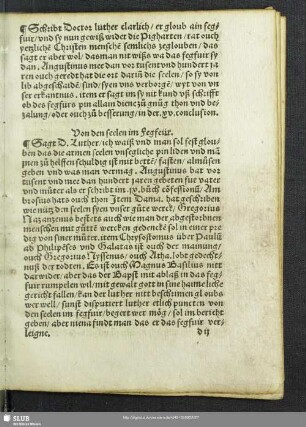 ¶ Schribt Doctor luther clarlich/ er gloub ain fegs
fuir/ vnd sy nun gewiß wider die Pigharten/ rat ouch
yetzliche Christen menschē semlichs zeglouben/ das
sagt er aber wol/ das man nit wiß wa das fegfuir sy
dan, Augustinus mer dan vor tusent vnd hundert jar
ten ouch geredt hat die ort dariū die seelen/ so sy von
lib abgeschaidē sind/ syen vns verborgē/ wyt von vn
ser erkantnus, item er sagt im sy nit kund vß schrifft
ob des fegfuirs pin allain dienē zů gnůg thon vnd be
zalung/ oder ouch zů besserung/ in der .xv. conclusion.
Von den seelen im fegfeür.
¶ Sagt D. Luther/ ich waiß vnd man sol fest glou
ben das die armen seelen vnsegliche pin liden vnd mā
inen zů helffen schuldig ist mit bettē/ fasten/ almůsen
geben vnd was man vermag. Augustinus hat vor
tusent vnd mee dan hundert jaren gebeten fur vater
vnd můter als er schribt im .ix. bůch cōfessionū/ Am
brosius hats ouch thon. Item Dama. hat geschriben
wie nütz den seelen syen vnser gůte werck/ Gregorius
Nazanzenus desters auch wie man der abgestorbnen
menschen mit gůtē wercken gedenckē sol in einer pre
dig von siner můter, item Chrysostomus über Paulū
ad Philipēses vnd Galatas ist ouch der mainung/
ouch Gregorius Nyssenus/ ouch Atha. lobt gedecht
nuß der todten. Es ist ouch Magnus Basilius nitt
darwider. aber das der Bapst mit ablaß in das feg
fuir rumpelen wil/ mit gewalt gott in sine haimeliche
gericht fallen/ kan der luther nitt beschirmen gloubs
wer well/ sunst disputiert luther etlich puncten von
den seelen im fegfuir/ begert wer mög/ sol im bericht
geben/ aber niena findt man das er das fegfuir ver
leigne.
d ij
SLUB